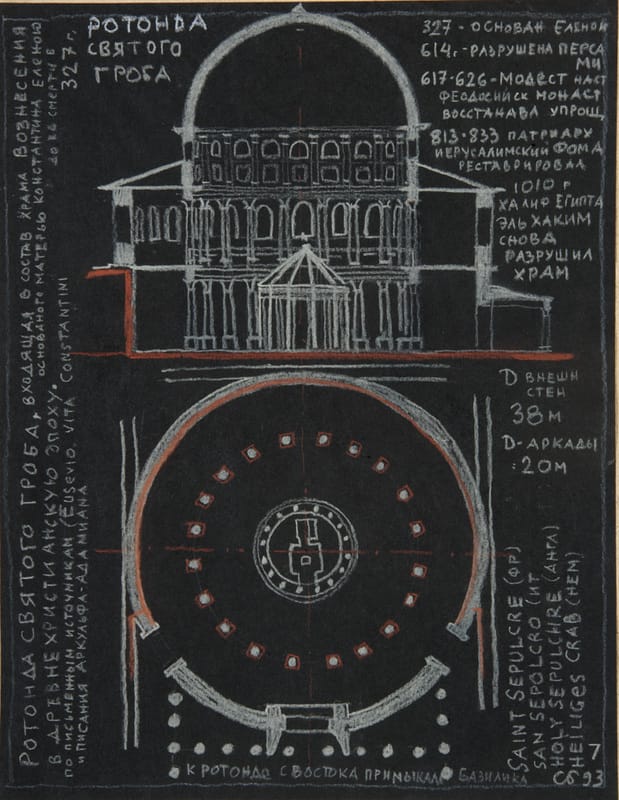 РОТОНДА
СВЯТОГО
ГРОБА
327 - ОСНОВАН ЕЛЕНОЙ
614г. - РАЗРУШЕНА ПЕРСА
МИ
617-626 - МОДЕСТ НАСТ
ФЕОДОСИЙСК МОНАСТ
ВОССТАНАВЛ УПРОЩ
813-833 ПАТРИАРХ
ИЕРУСАЛИМСКИЙ ФОМА
РЕСТАВРИРОВАЛ
1010 г
ХАЛИФ ЕГИПТА
ЭЛЬ ХАКИМ
СНОВА
РАЗРУШИЛ
ХРАМ
D ВНЕШН
СТЕН
38 М
D-АРКАДЫ
: 20М
РОТОНДА СВЯТОГО ГРОБА, ВХОДЯЩАЯ В СОСТАВ ХРАМА ВОЗНЕСЕНИЯ
ОСНОВАНОГО МАТЕРЬЮ КОНСТАНТИНА ЕЛЕНОЮ
ДО ЕЕ СМЕРТИ В
327 г.
В ДРЕВНЕ ХРИСТИАНСКУЮ ЭПОХУ.
ПО ПИСЬМЕННЫМ ИСТОЧНИКАМ (EUSEVIO. VITA CONSTANTINI
И ПИСАНИЯ АРКУЛЬФА-АДАМИАНА
SAINT SEPULCRE (ФР)
SAN SEPOLCRO (ИТ
HOLY SEPULCHRE (АНГЛ)
HEILIGES CRAB (НЕМ)
К РОТОНДЕ С ВОСТОКА ПРИМЫКАЛА БАЗИЛИКА
7
СБ 93